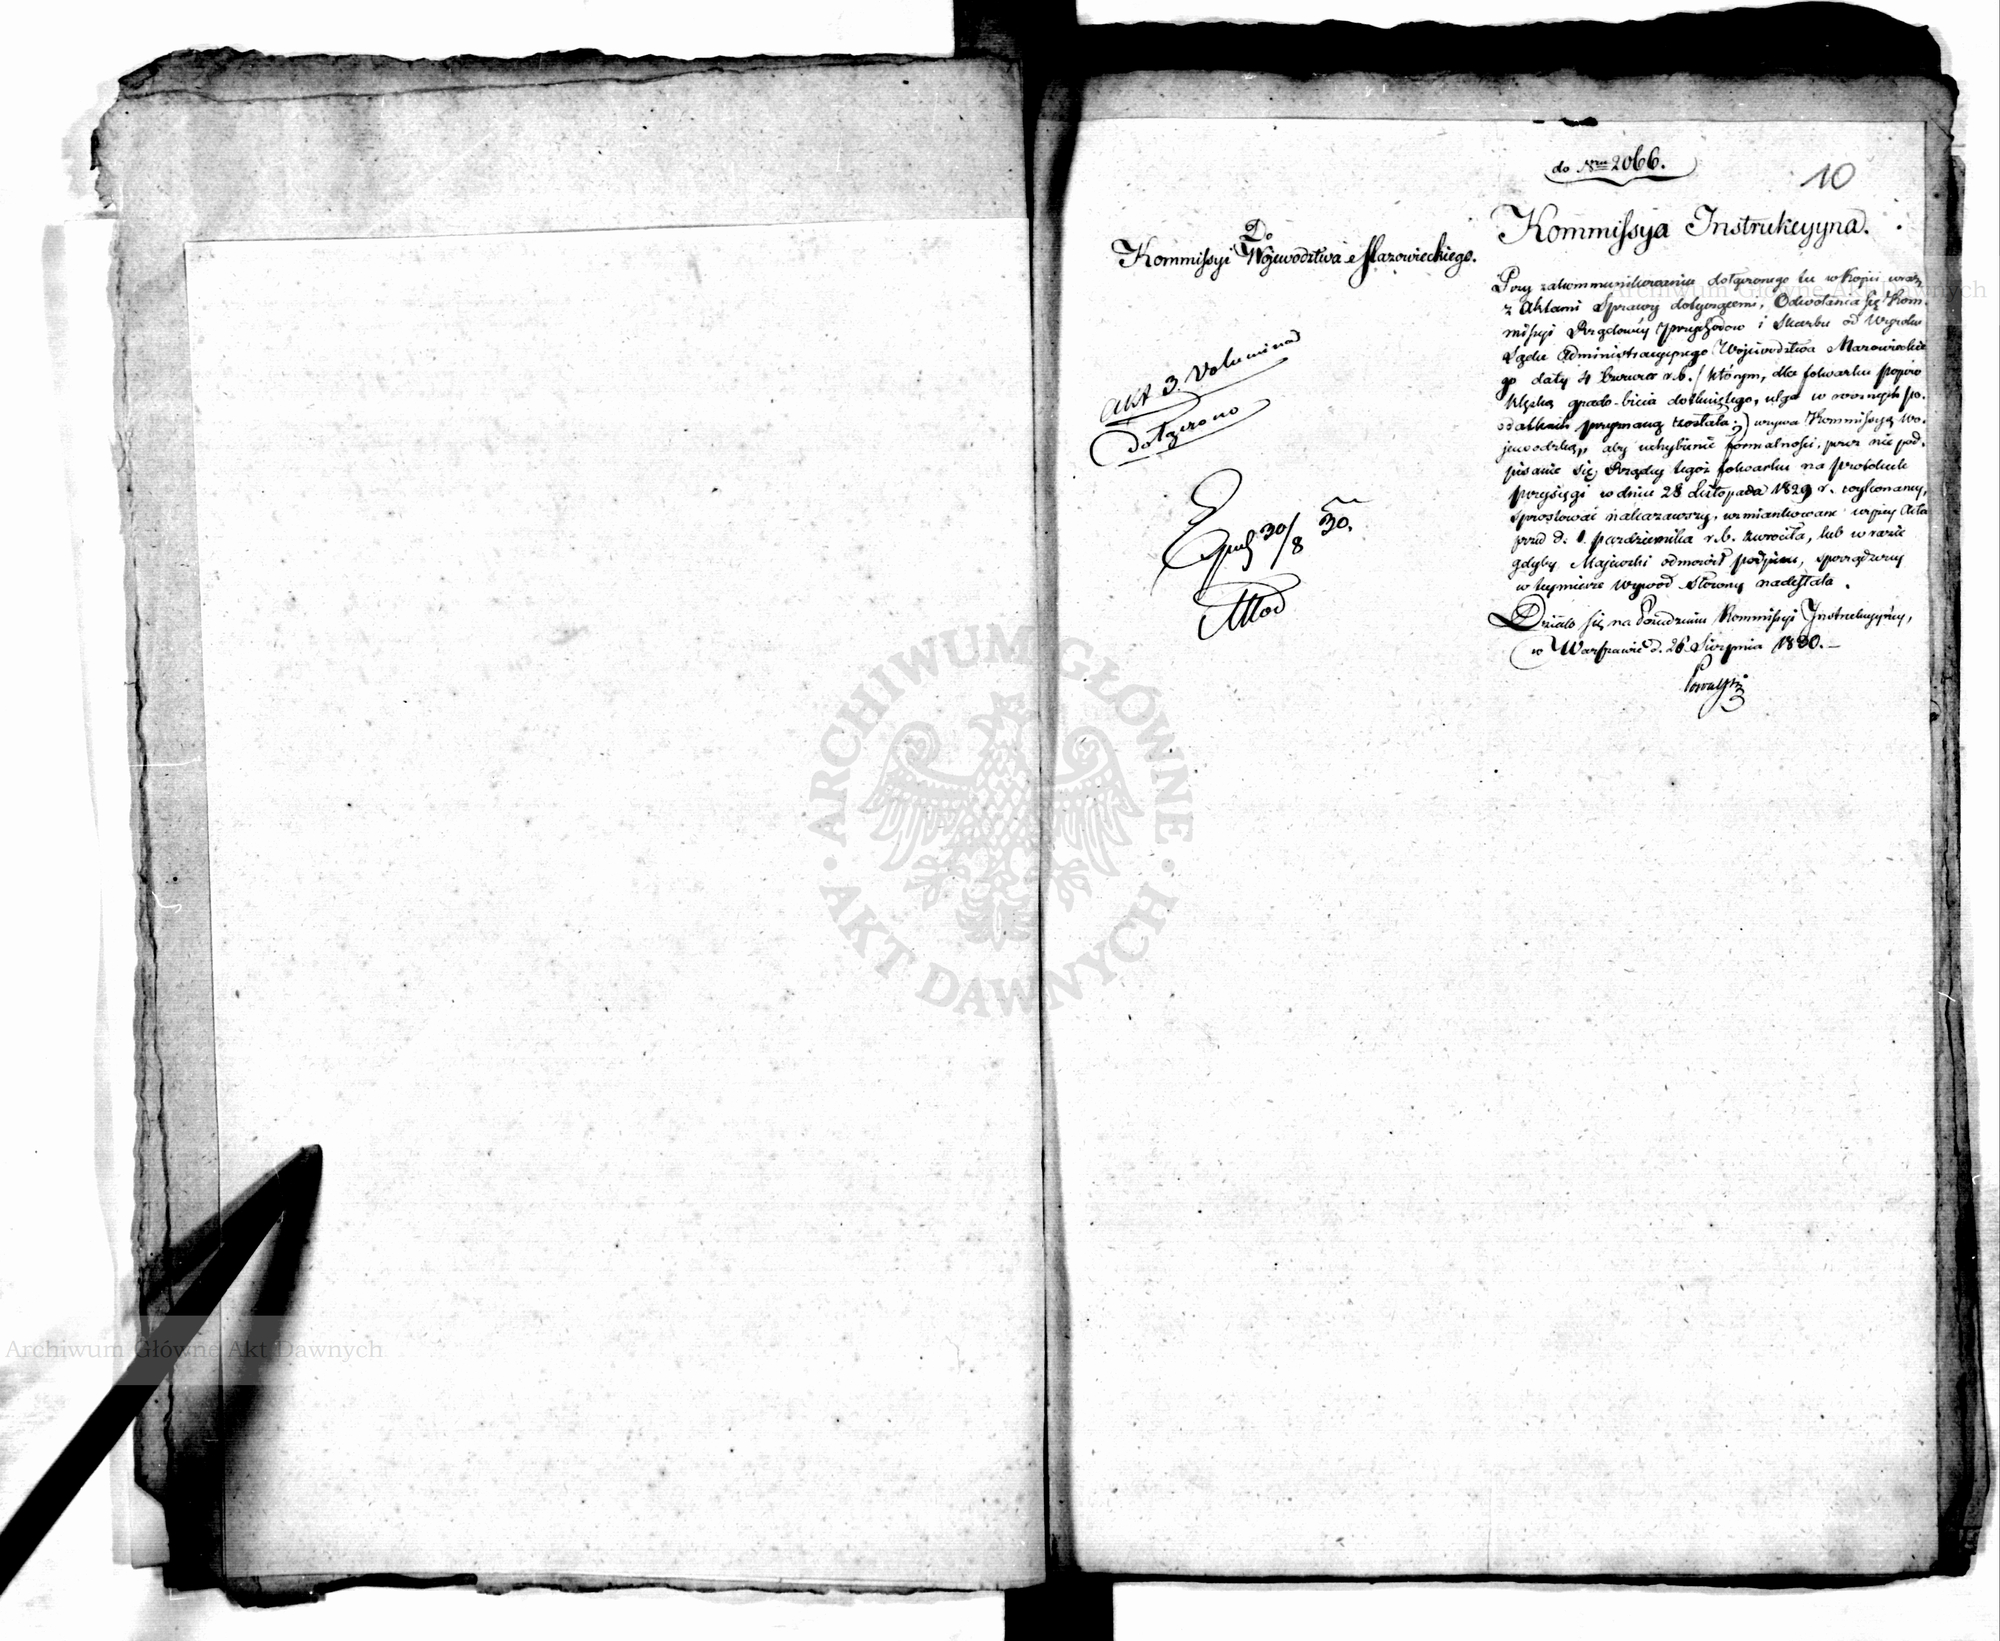 do Nru 2066.
10
Do
Kommissyi Województwa Mazowieckiego.
Akt 3. Volumina
dołączono
30/8 30.
Kommissya Instrukcyyna.
Przy zakommunikowaniu dołączonego tu w kopii wraz
z Aktami Sprawy dotyczącemi, Odwołania się Kom-
missyi Rządowéy Przychodow i Skarbu od Wyroku
Sądu Administracyynego Województwa Mazowieckie
go daty 4 Czerwca r.b. / którym, dla folwarku Popowo
klęską grado-bicia dotkniętego, ulga w rocznych po-
datkach przyznaną została; / wzywa Kommissyą Wo-
jewodzką, aby uchybienie formalności, przez nie pod-
pisanie się Rządcy tegoż folwarku na protokule
przysięgi w dniu 28 Listopada 1829 r. wykonaney,
sprostować nakazawszy, wzmiankowane wyżey Akta
przed d. 1. Października r.b. zwróciła, lub w razie
gdyby Majewski odmówił podpisu, sporządzony
w teymierze wywod słowny nadesłała.
Działo się na Posiedzeniu Kommissyi Instrukcyyney,
w Warszawie d. 26. Sierpnia 1830.
ARCHIWUM GŁÓWNE
AKT DAWNYCH
Archiwum Główne Akt Dawnych
Archiwum Główne Akt Dawnych